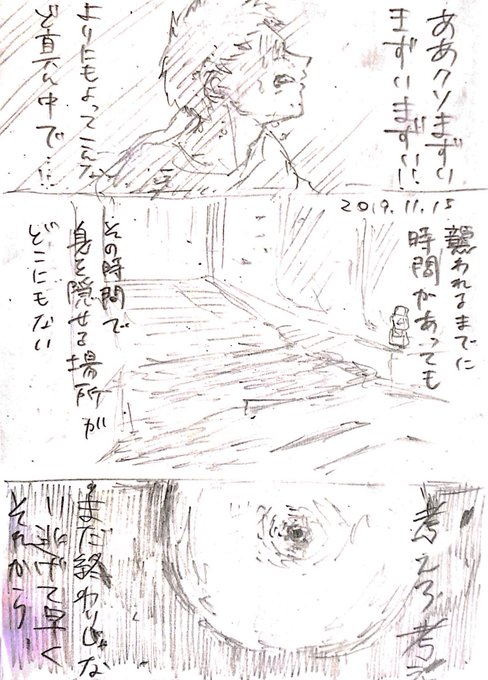 ああクソまずい
まずいまずい!!
よりにもよってこんな
ど真ん中で…!!
2019.11.15
襲われるまでに
時間があっても
その時間で
身を隠せる場所が
どこにもない
考えろ 考え
まだ終わりじゃな
逃げて早く
それから